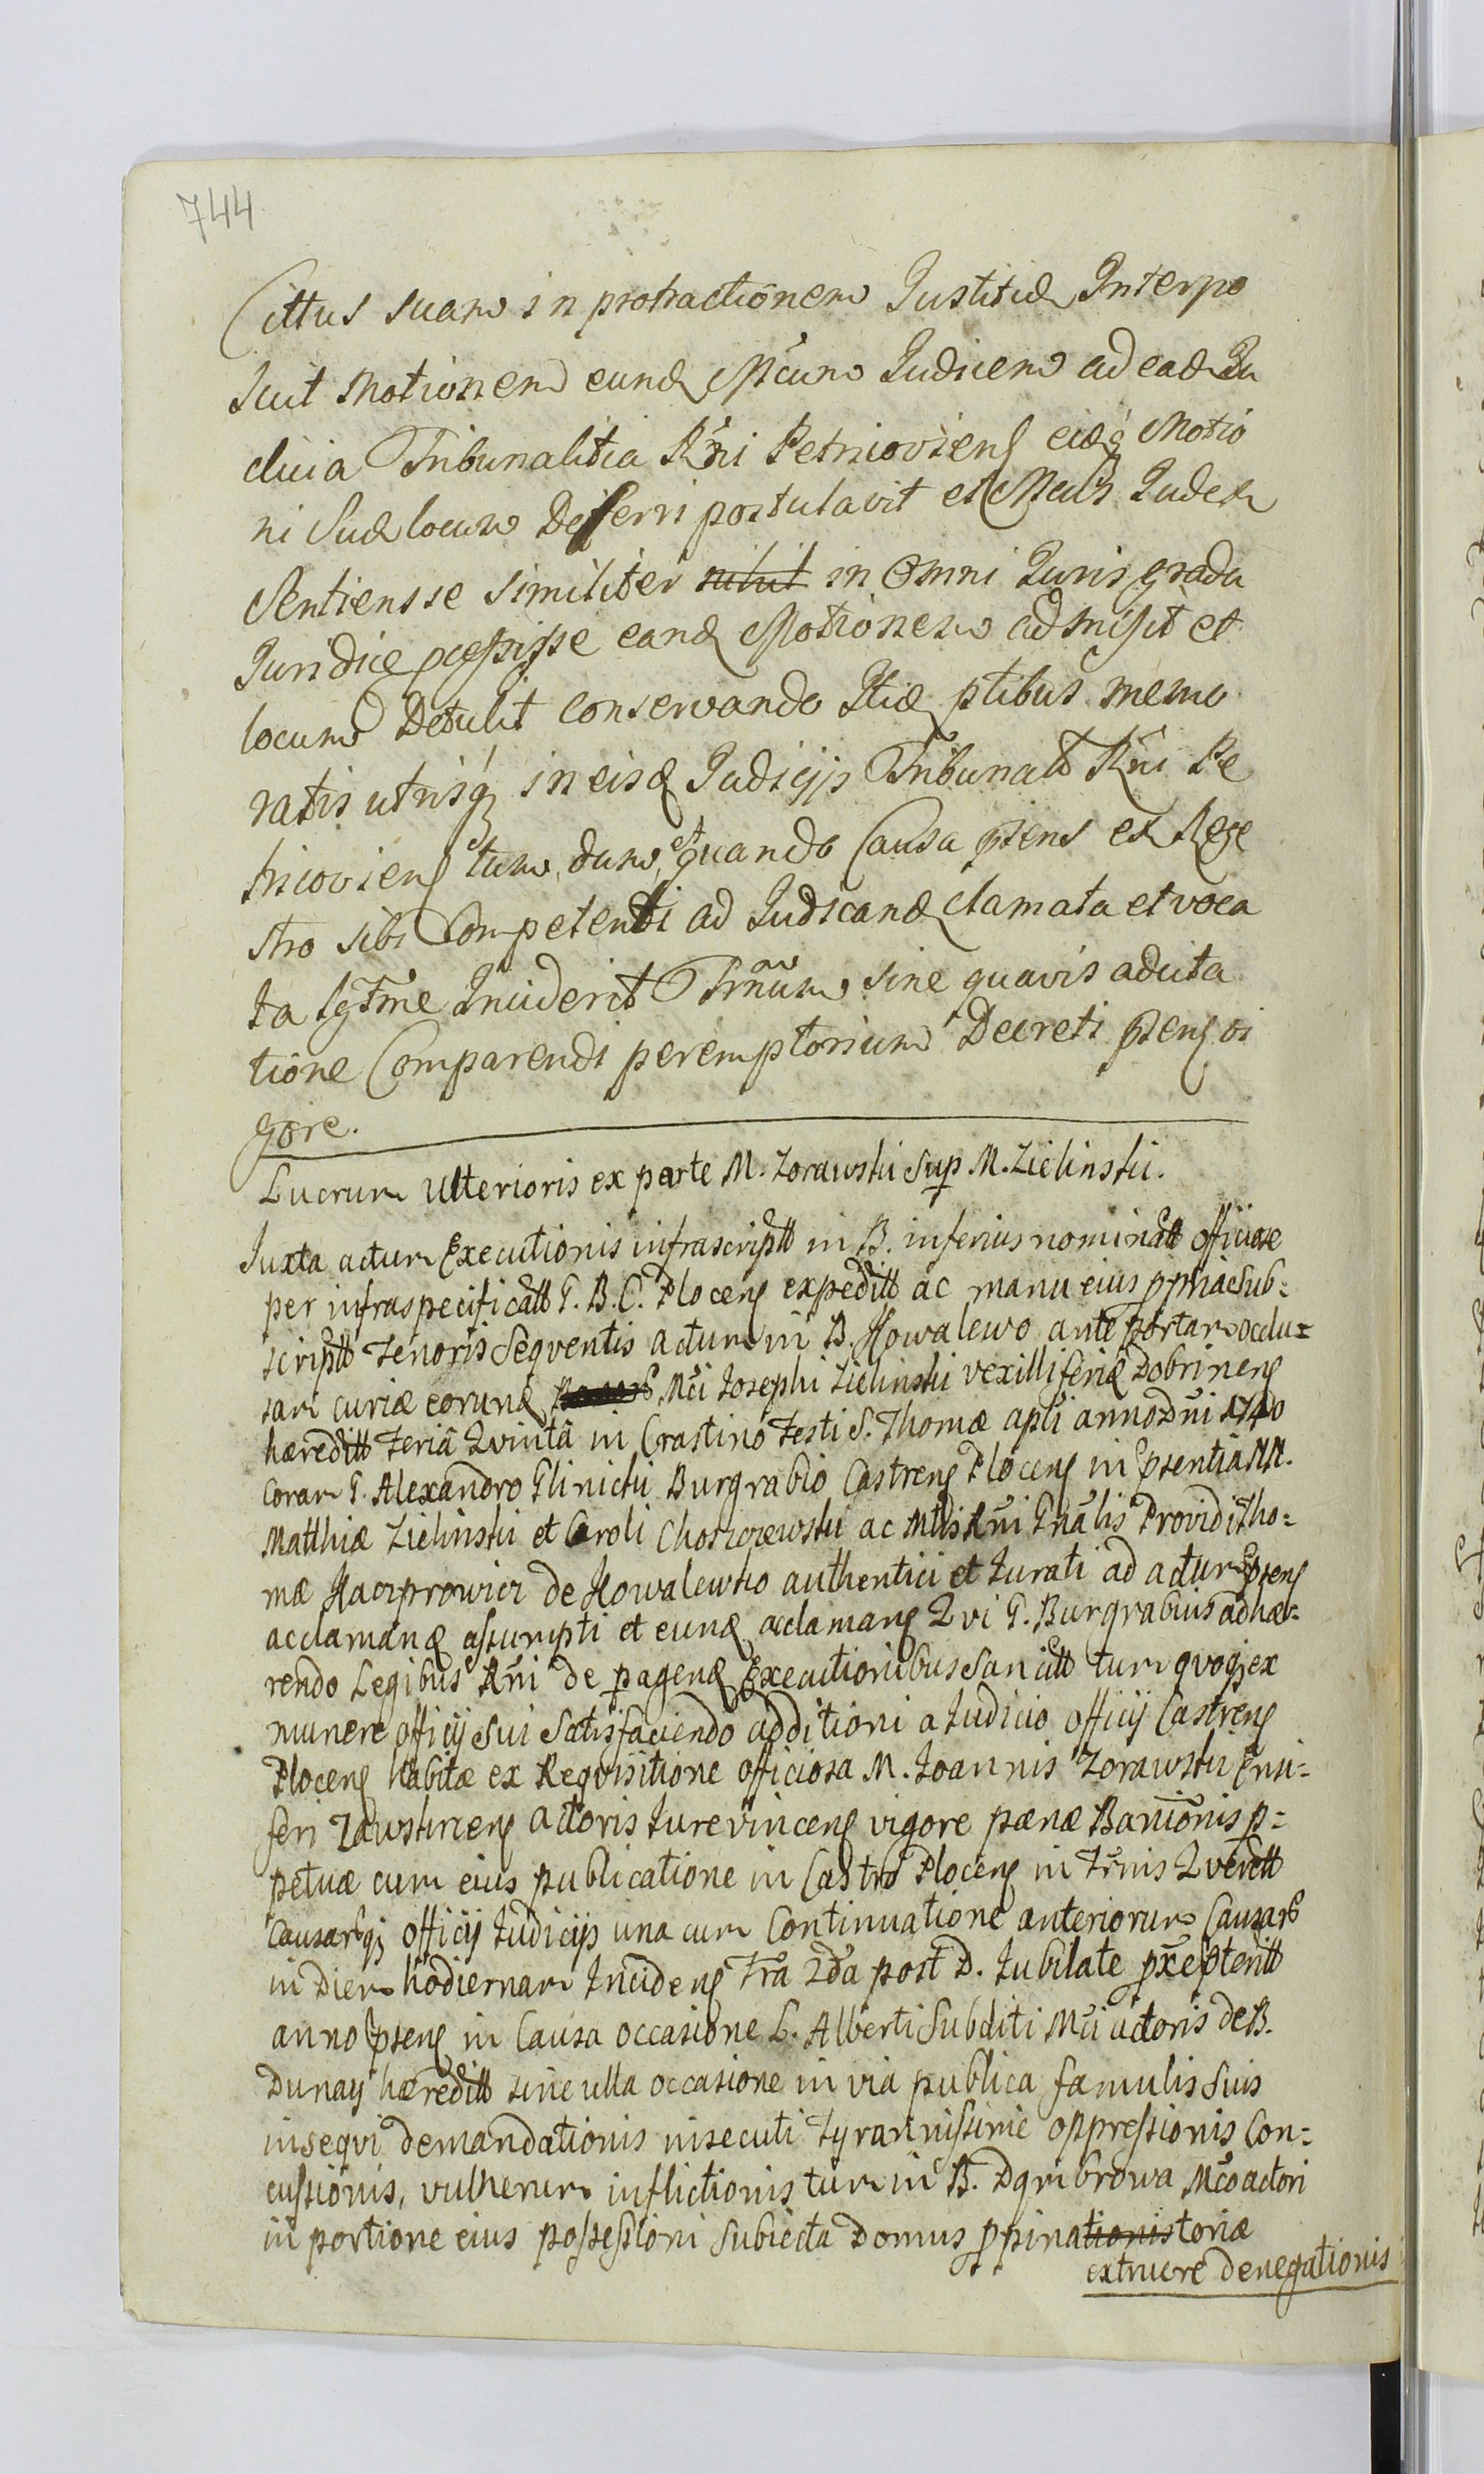 744
Cittus suam in protractionem Justitiæ Interpo
suit Motionem eund Mcum Judicem ad eadem Ju
dicia Tribunalitia Rni Petricoviens eidq Motio
ni Suæ locum Deferri postulavit et Mcus Judex
Sentiens se similiter nihil in Omni Juris gradu
Juridice pcessisse eand Motionem admisit et
locum Detulit conservando Itid ptibus memo
ratis utrisq in eisd Judicijs Tribunald Rni Pe
tricoviens tum, dum, et quando Causa psens ex Rege
stro sibi Competenti ad Judicand clamata et voca
ta lgtme Inciderit Trnum sine quavis adcita
tione Comparendi peremptorium Decreti psens vi
gore.
Lucrum ulterioris ex parte M. Zorawski sup M. Zielinski.
Juxta actum Executionis infrascriptt in B. inferius nominatt officiose
per infraspecificatt G. B. C. Plocens expeditt ac manu eius ppria Sub=
scriptt Tenoris Seqventis actum in B. Kowalewo ante portam occlu=
sam curiæ eorund Mci Josephi Zielinski vexilliferid Dobrinens
hæreditt Feriâ Qvintâ in Crastino Festi S. Thomæ apli anno Dni 1740
Coram G. Alexandro Glinicki Burgrabio Castrens Plocens in psentia NN.
Matthiæ Zielinski et Caroli Choszczewski ac Mtlis Rni Gnalis Providi Tho=
mæ Kacprowicz de Kowalewko authentici et Jurati ad actum psens
acclamand assumpti et eund acclamans Qvi G. Burgrabius adhæ=
rendo Legibus Rni de pagend Executionibus Sancitt tum qvoq ex
munere officij sui Satisfaciendo additioni a Judicio officij Castrens
Plocens habitæ ex Reqvisitione officiosa M. Joannis Zorawski Ensi=
feri Zawskrzens actoris Jurevincens vigore pænæ Banionis p=
petuæ cum eius publicatione in Castro Plocens in Trnis Qverett
Causarq officij Judicijs una cum Continuatione anteriorum Causar
in Diem hodiernam Incidens Fra 2da post D. Jubilate pxe pteritt
anno psens in Causa occasione L. Alberti Subditi Mci actoris de B.
Dunay hæreditt sine ulla occasione in via publica famulis suis
inseqvi demandationis insecuti Tyrannissime oppressionis Con=
cussionis, vulnerum inflictionis tum in B. Dąmbrowa Mco actori
in portione eius possessioni Subiecta Domus ppinationis toriæ
extruere denegationis